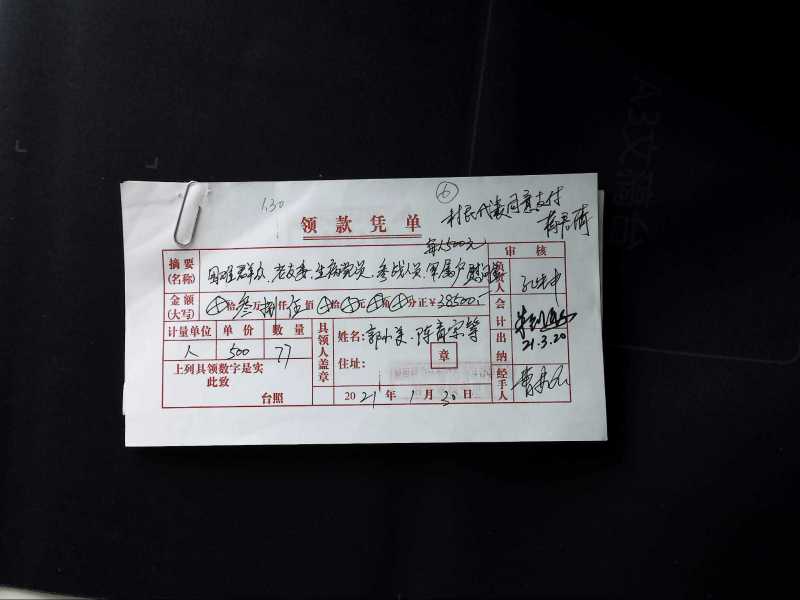 1.30
⑥
村民代表同意支付
领款凭单
每人500元
审核
摘要(名称) 困难群众、老支委、生病党员、参战人员、军属户慰问金
负责人
金额(大写) ⊕拾叁万捌仟伍佰⊕拾⊕元⊕角⊕分正¥38500.-
会计
计量单位 单价 数量
人 500 77
具领人盖章
姓名:郭小美、陈育宗等
住址:
章
出纳
21.3.20
上列具领数字是实
此致
台照
2021年1月30日
经手人
A3文